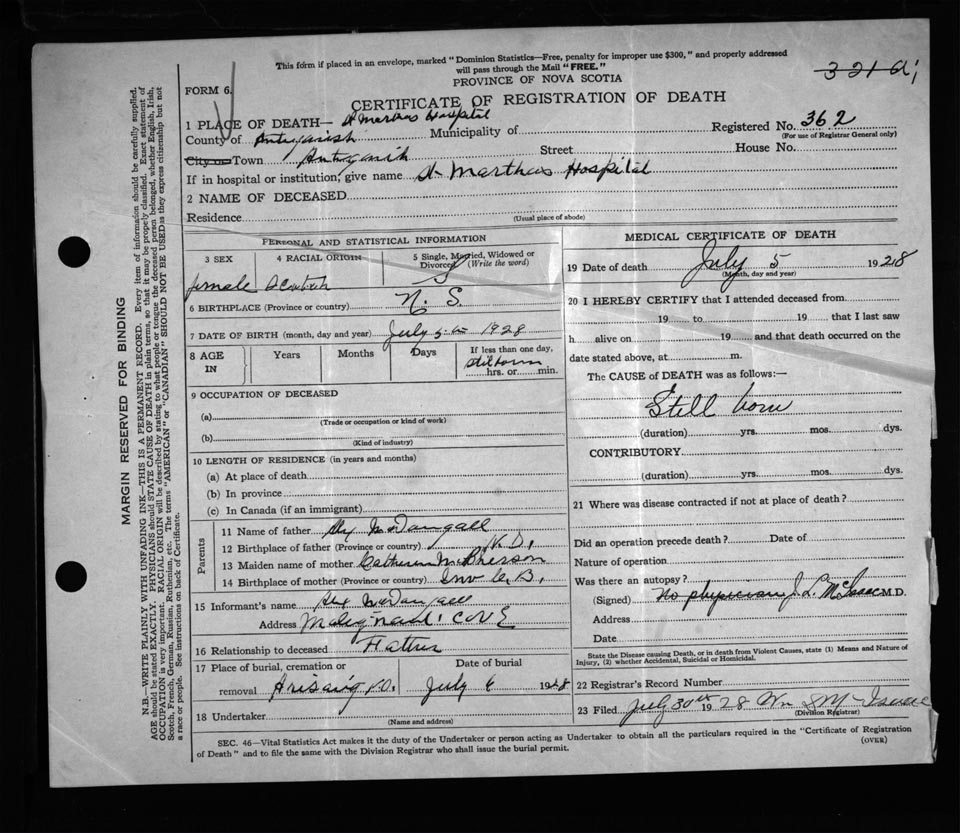 This form if placed in an envelope, marked "Dominion Statistics—Free, penalty for improper use $300," and properly addressed
will pass through the Mail "FREE."
PROVINCE OF NOVA SCOTIA
321
FORM 6.
CERTIFICATE OF REGISTRATION OF DEATH
1 PLACE OF DEATH— St Marthas Hospital
Registered No. 362
(For use of Registrar General only)
County of Antigonish Municipality of
City or Town Antigonish Street House No.
If in hospital or institution, give name St Marthas Hospital
2 NAME OF DECEASED
Residence
(Usual place of abode)
PERSONAL AND STATISTICAL INFORMATION
3 SEX 4 RACIAL ORIGIN 5 Single, Married, Widowed or Divorced (Write the word)
female Scotch S
6 BIRTHPLACE (Province or country) N. S.
7 DATE OF BIRTH (month, day and year) July 5th 1928
8 AGE IN Years Months Days If less than one day, hrs. or min.
Stillborn
9 OCCUPATION OF DECEASED
(a)
(Trade or occupation or kind of work)
(b)
(Kind of industry)
10 LENGTH OF RESIDENCE (in years and months)
(a) At place of death
(b) In province
(c) In Canada (if an immigrant)
Parents
11 Name of father Alex McDougall
12 Birthplace of father (Province or country)
13 Maiden name of mother Catherine McPherson
14 Birthplace of mother (Province or country) Inv C.B.
15 Informant's name Alex McDougall
Address Malignant Cove
16 Relationship to deceased Father
17 Place of burial, cremation or removal Date of burial
Arisaig July 6 1928
18 Undertaker
(Name and address)
MEDICAL CERTIFICATE OF DEATH
19 Date of death July 5 1928
(Month, day and year)
20 I HEREBY CERTIFY that I attended deceased from
19 to 19 that I last saw
h alive on 19 and that death occurred on the
date stated above, at m.
The CAUSE of DEATH was as follows:—
Still born
(duration) yrs. mos. dys.
CONTRIBUTORY
(duration) yrs. mos. dys.
21 Where was disease contracted if not at place of death?
Did an operation precede death? Date of
Nature of operation
Was there an autopsy?
(Signed) No physician J. L. McIsaac M.D.
Address
Date
State the Disease causing Death, or in death from Violent Causes, state (1) Means and Nature of
Injury, (2) whether Accidental, Suicidal or Homicidal.
22 Registrar's Record Number
23 Filed July 30th 1928 Wm McIsaac
(Division Registrar)
SEC. 46—Vital Statistics Act makes it the duty of the Undertaker or person acting as Undertaker to obtain all the particulars required in the "Certificate of Registration
of Death" and to file the same with the Division Registrar who shall issue the burial permit.
(OVER)
MARGIN RESERVED FOR BINDING
N.B.—WRITE PLAINLY WITH UNFADING INK—THIS IS A PERMANENT RECORD. Every item of information should be carefully supplied.
AGE should be stated EXACTLY. PHYSICIANS should STATE CAUSE OF DEATH in plain terms, so that it may be properly classified. Exact statement of
OCCUPATION is very important. RACIAL ORIGIN will be described by stating to what people or tongue the deceased person belonged, whether English, Irish,
Scotch, French, German, Russian, Ruthenian, etc. The terms "AMERICAN" or "CANADIAN" SHOULD NOT BE USED as they express citizenship but not
a race or people. See instructions on back of Certificate.